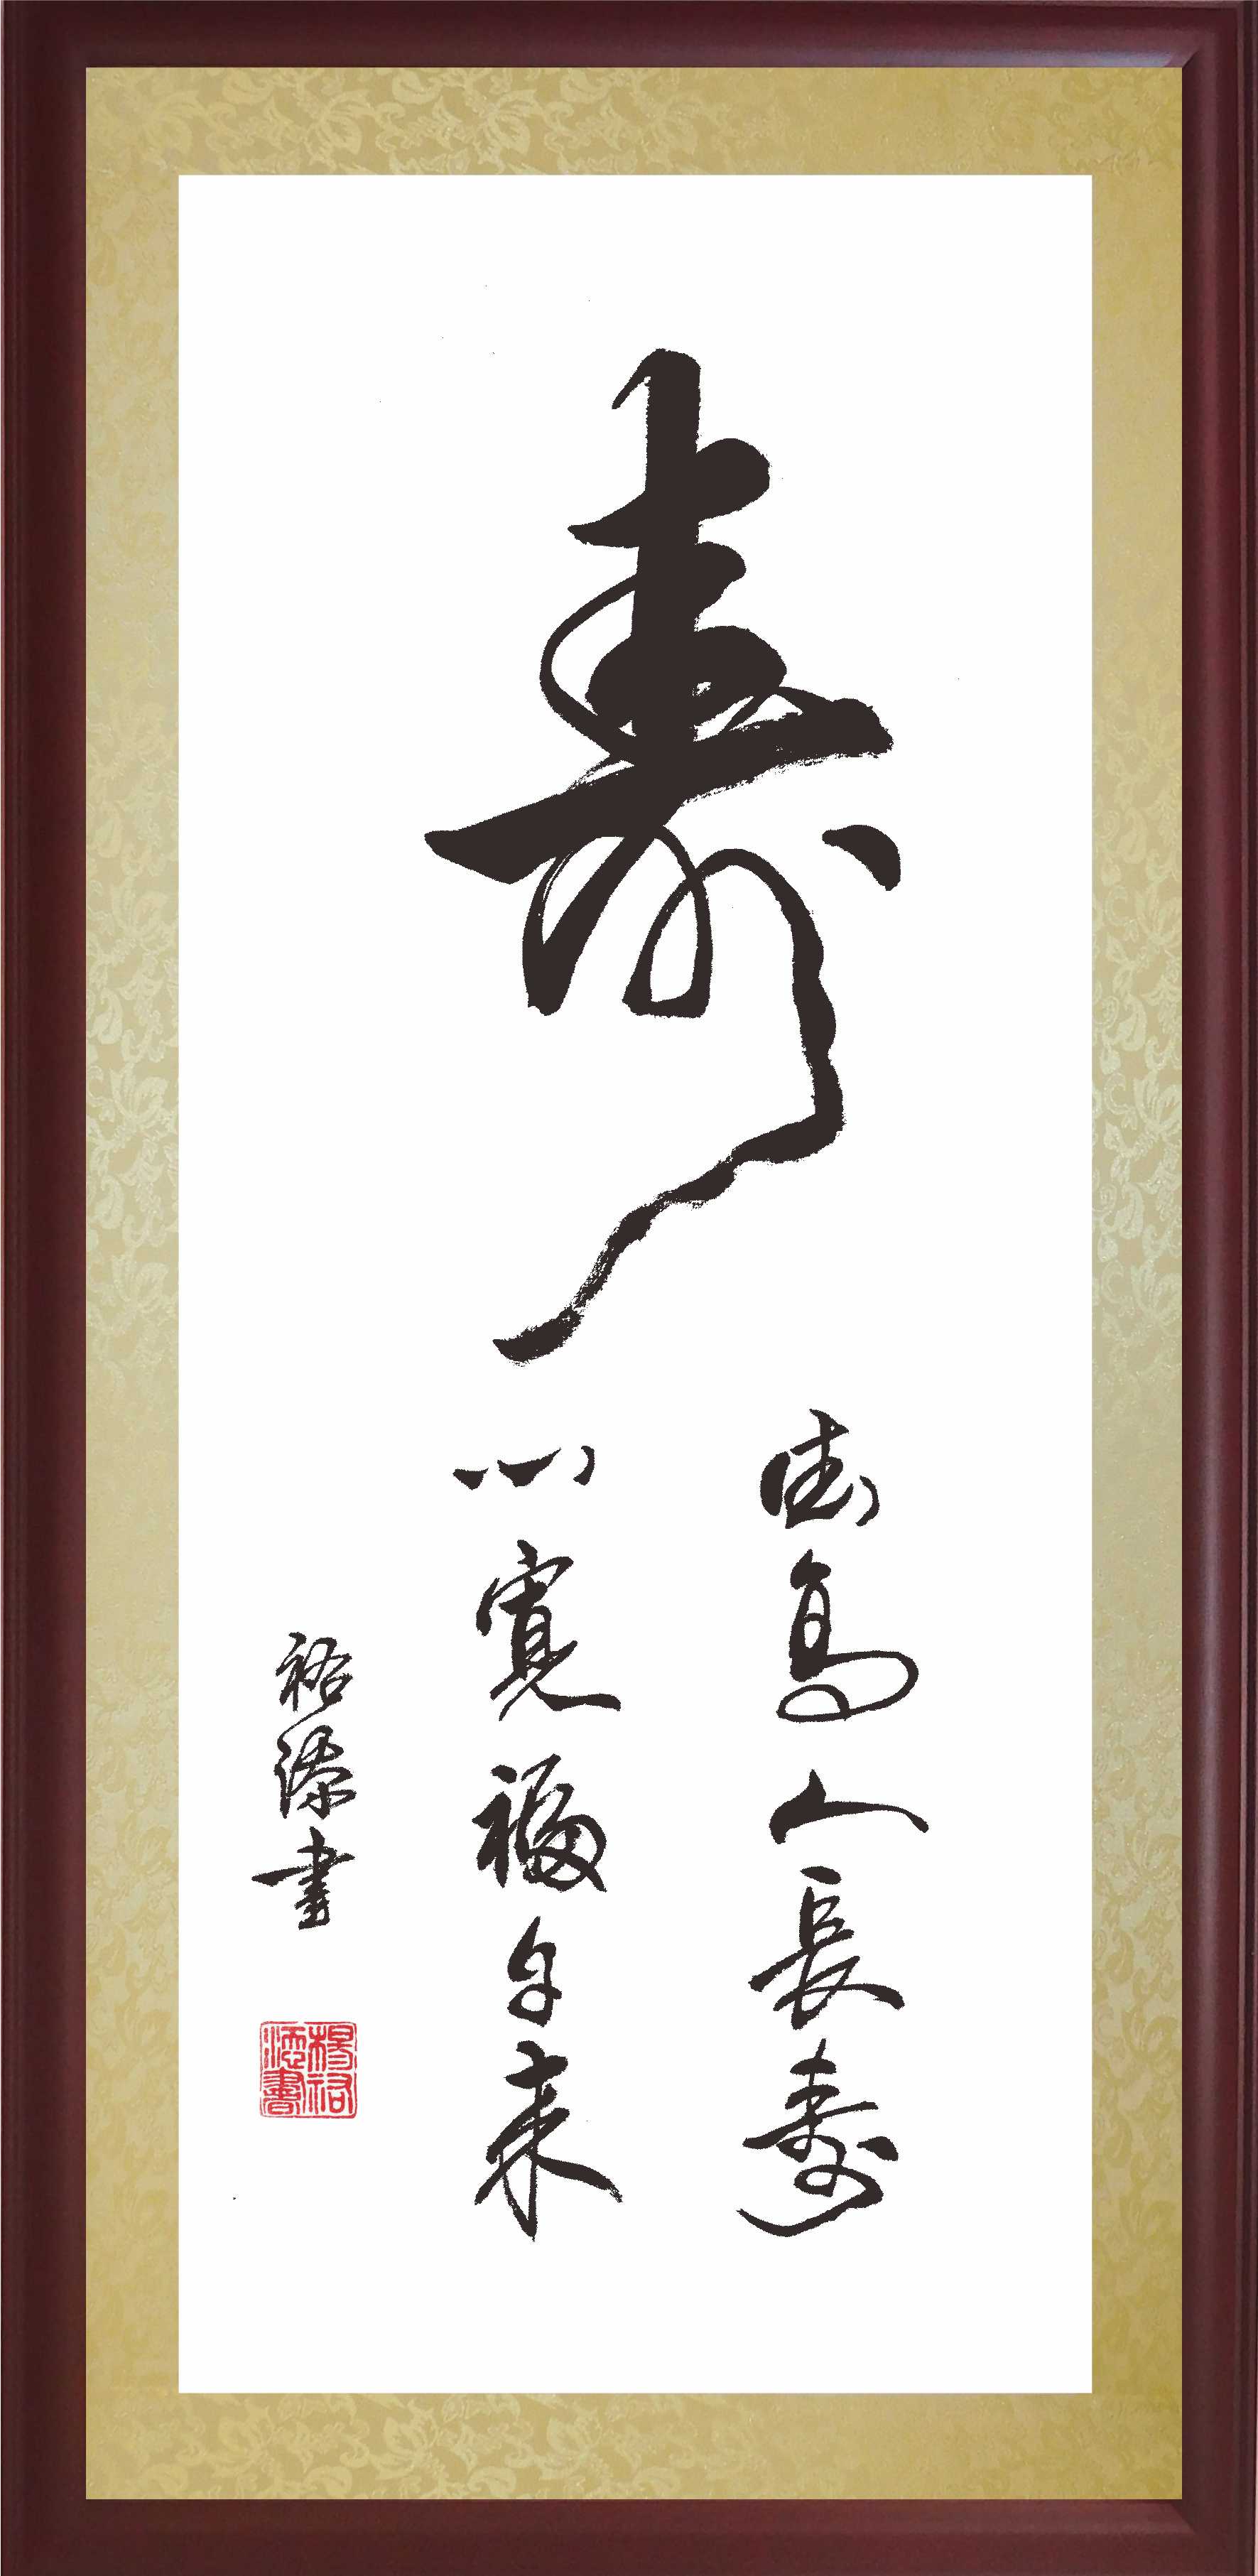 壽
德高人長壽
心寬福自来
裕添書
楊裕添書